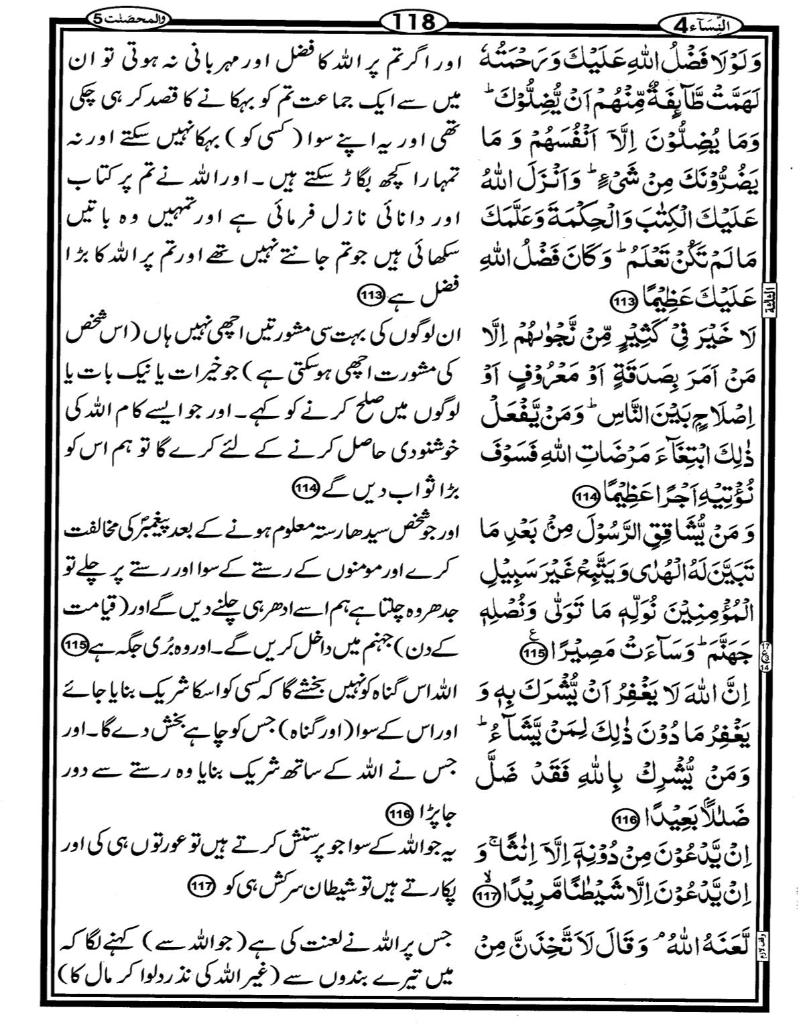 النسآء 4
118
والمحصنت 5
وَلَوْلَا فَضْلُ اللّٰهِ عَلَيْكَ وَرَحْمَتُهٗ
لَهَمَّتْ طَّآىِٕفَةٌ مِّنْهُمْ اَنْ يُّضِلُّوْكَ ؕ
وَمَا يُضِلُّوْنَ اِلَّاۤ اَنْفُسَهُمْ وَمَا
يَضُرُّوْنَكَ مِنْ شَىْءٍ ؕ وَاَنْزَلَ اللّٰهُ
عَلَيْكَ الْكِتٰبَ وَالْحِكْمَةَ وَعَلَّمَكَ
مَا لَمْ تَكُنْ تَعْلَمُ ؕ وَكَانَ فَضْلُ اللّٰهِ
عَلَيْكَ عَظِيْمًا 113
لَا خَيْرَ فِىْ كَثِيْرٍ مِّنْ نَّجْوٰىهُمْ اِلَّا
مَنْ اَمَرَ بِصَدَقَةٍ اَوْ مَعْرُوْفٍ اَوْ
اِصْلَاحٍۭ بَيْنَ النَّاسِ ؕ وَمَنْ يَّفْعَلْ
ذٰلِكَ ابْتِغَآءَ مَرْضَاتِ اللّٰهِ فَسَوْفَ
نُؤْتِيْهِ اَجْرًا عَظِيْمًا 114
وَمَنْ يُّشَاقِقِ الرَّسُوْلَ مِنْۢ بَعْدِ مَا
تَبَيَّنَ لَهُ الْهُدٰى وَيَتَّبِعْ غَيْرَ سَبِيْلِ
الْمُؤْمِنِيْنَ نُوَلِّهٖ مَا تَوَلّٰى وَنُصْلِهٖ
جَهَنَّمَ ؕ وَسَآءَتْ مَصِيْرًا 115 ع
اِنَّ اللّٰهَ لَا يَغْفِرُ اَنْ يُّشْرَكَ بِهٖ وَ
يَغْفِرُ مَا دُوْنَ ذٰلِكَ لِمَنْ يَّشَآءُ ؕ
وَمَنْ يُّشْرِكْ بِاللّٰهِ فَقَدْ ضَلَّ
ضَلٰلًاۢ بَعِيْدًا 116
اِنْ يَّدْعُوْنَ مِنْ دُوْنِهٖۤ اِلَّاۤ اِنٰثًا ۚ وَ
اِنْ يَّدْعُوْنَ اِلَّا شَيْطٰنًا مَّرِيْدًا 117
لَّعَنَهُ اللّٰهُ ۘ وَقَالَ لَاَتَّخِذَنَّ مِنْ
اور اگر تم پر اللہ کا فضل اور مہربانی نہ ہوتی تو ان
میں سے ایک جماعت تم کو بہکانے کا قصد کر ہی چکی
تھی اور یہ اپنے سوا (کسی کو) بہکا نہیں سکتے اور نہ
تمہارا کچھ بگاڑ سکتے ہیں۔ اور اللہ نے تم پر کتاب
اور دانائی نازل فرمائی ہے اور تمہیں وہ باتیں
سکھائی ہیں جو تم جانتے نہیں تھے اور تم پر اللہ کا بڑا
فضل ہے 113
ان لوگوں کی بہت سی مشورتیں اچھی نہیں ہاں (اس شخص
کی مشورت اچھی ہوسکتی ہے) جو خیرات یا نیک بات یا
لوگوں میں صلح کرنے کو کہے۔ اور جو ایسے کام اللہ کی
خوشنودی حاصل کرنے کے لئے کرے گا تو ہم اس کو
بڑا ثواب دیں گے 114
اور جو شخص سیدھا رستہ معلوم ہونے کے بعد پیغمبرؐ کی مخالفت
کرے اور مومنوں کے رستے کے سوا اور رستے پر چلے تو
جدھر وہ چلتا ہے ہم اسے ادھر ہی چلنے دیں گے اور (قیامت
کے دن) جہنم میں داخل کریں گے۔ اور وہ بُری جگہ ہے 115
اللہ اس گناہ کو نہیں بخشے گا کہ کسی کو اسکا شریک بنایا جائے
اور اس کے سوا (اور گناہ) جس کو چاہے بخش دے گا۔ اور
جس نے اللہ کے ساتھ شریک بنایا وہ رستے سے دور
جا پڑا 116
یہ جو اللہ کے سوا جو پرستش کرتے ہیں تو عورتوں ہی کی اور
پکارتے ہیں تو شیطان سرکش ہی کو 117
جس پر اللہ نے لعنت کی ہے (جو اللہ سے) کہنے لگا کہ
میں تیرے بندوں سے (غیر اللہ کی نذر دلوا کر مال کا)
الثلثة
وقف لازم